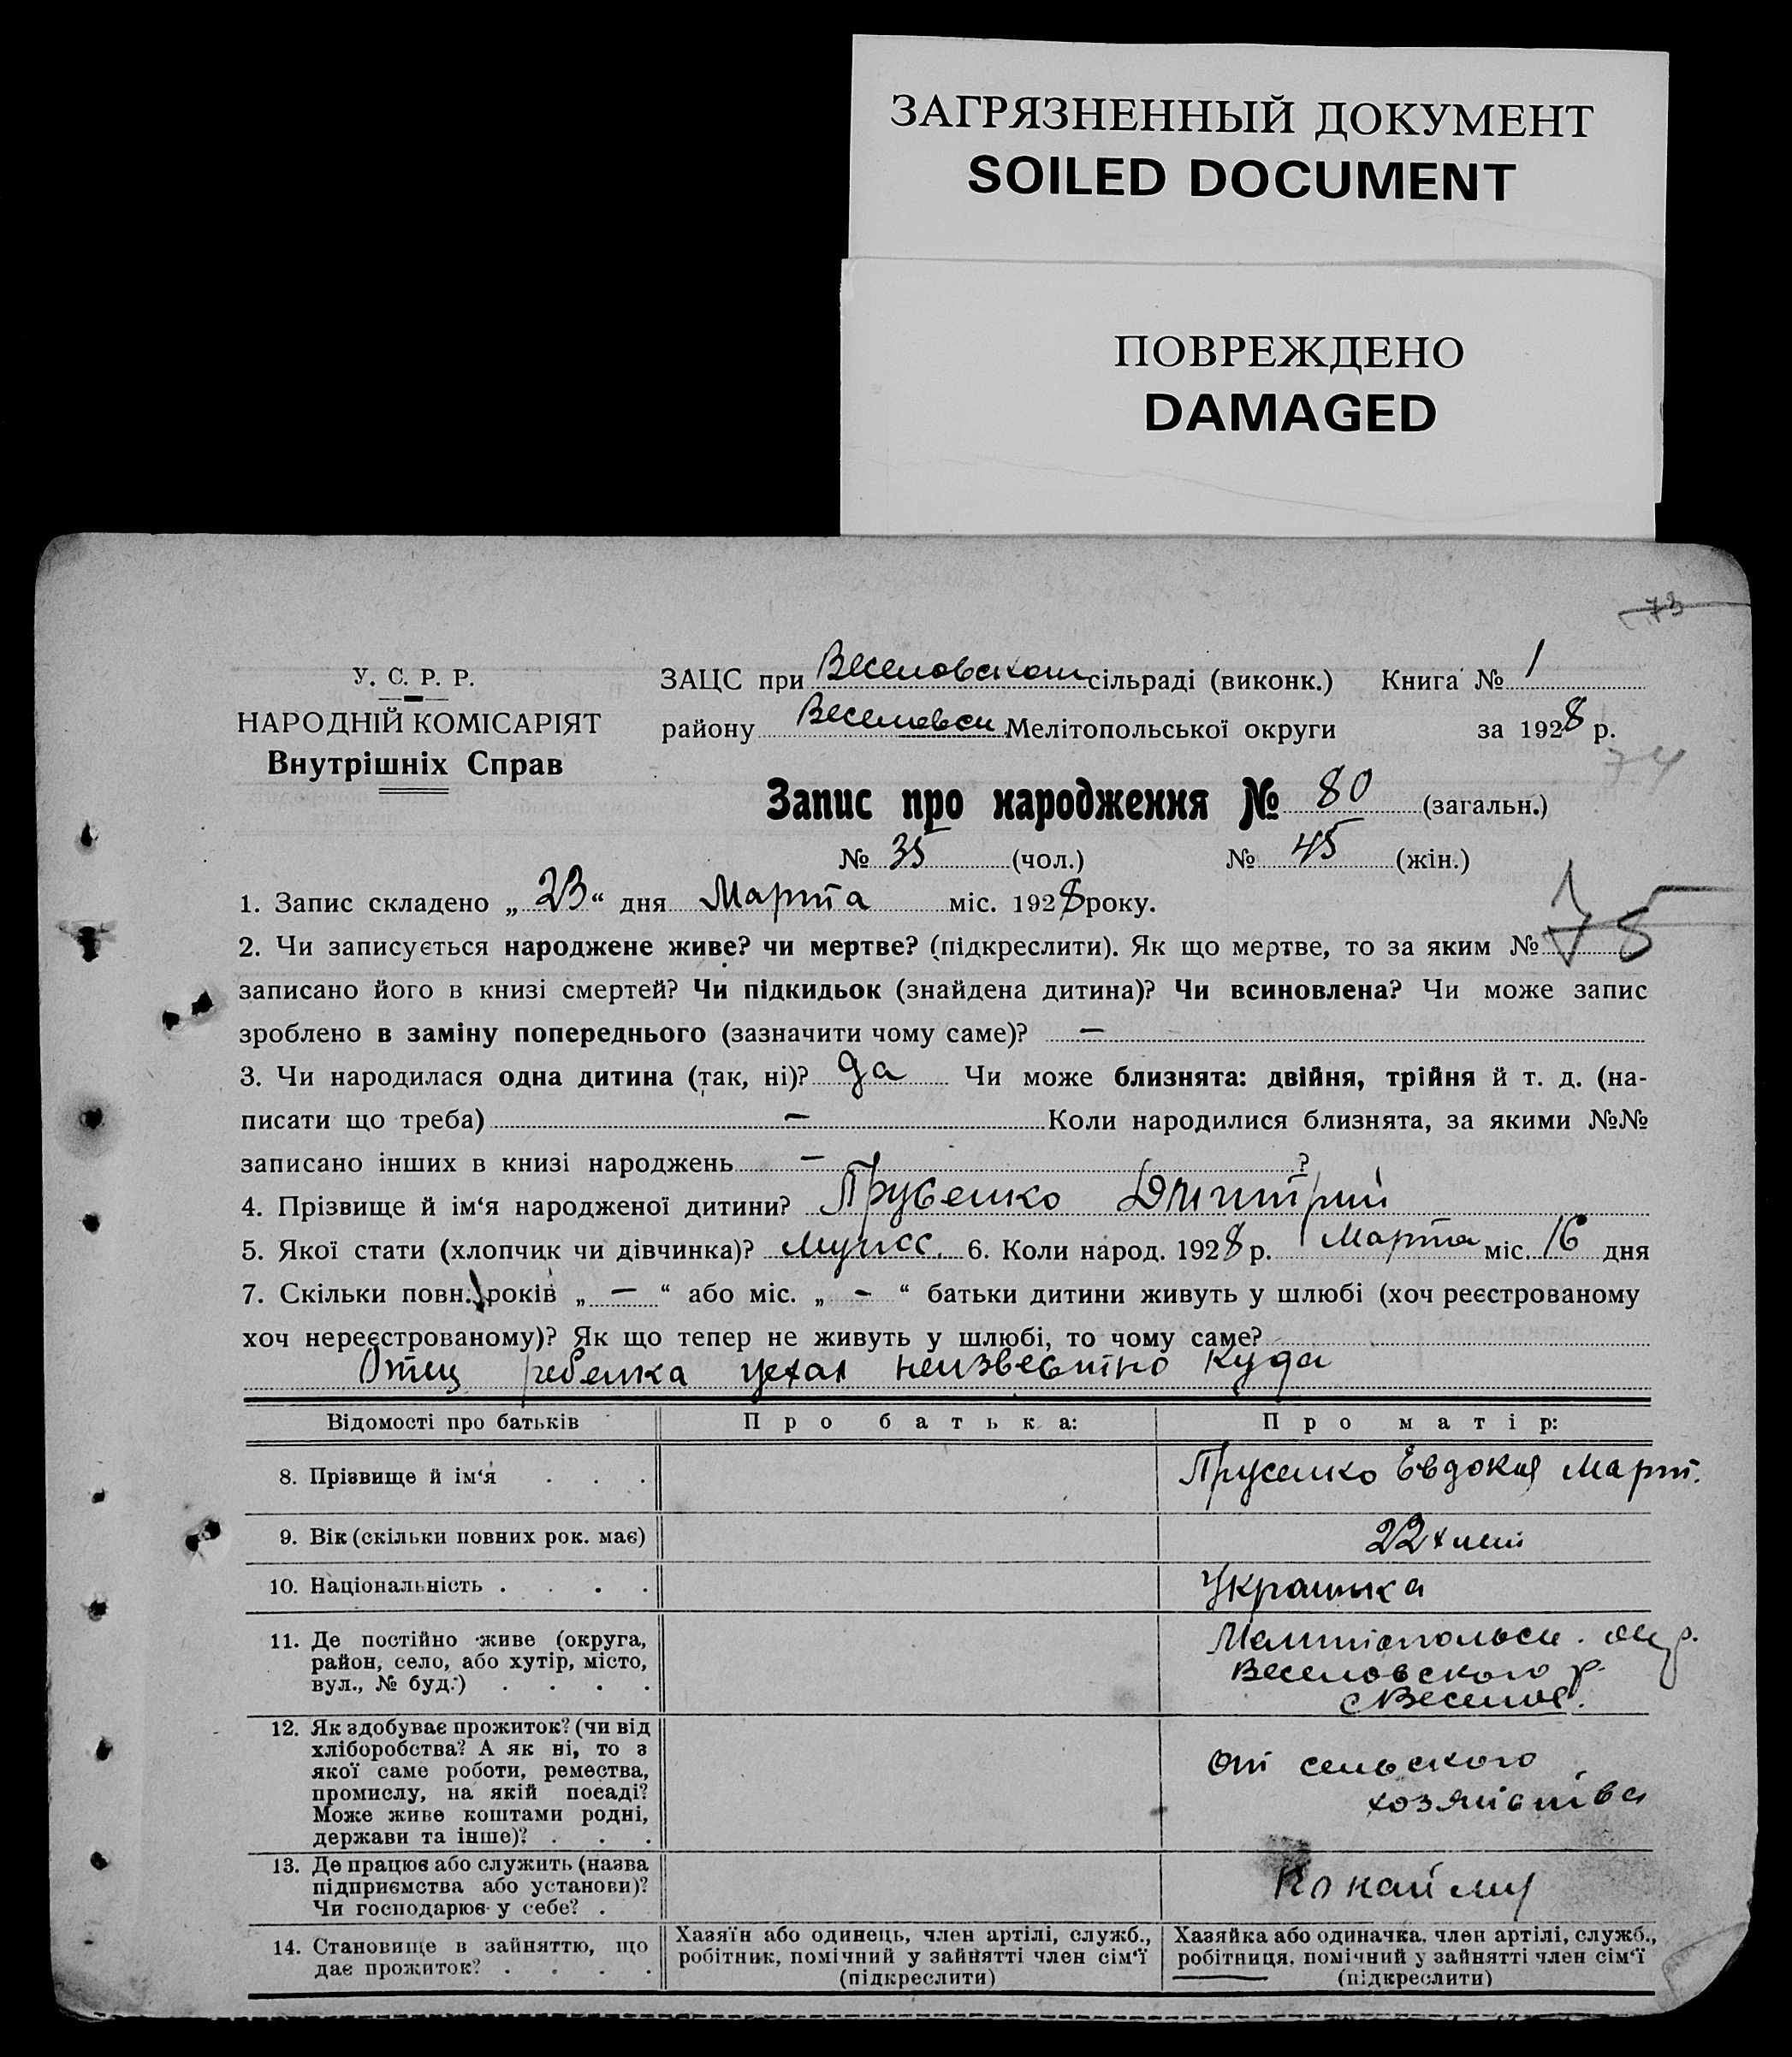 ЗАГРЯЗНЕННЫЙ ДОКУМЕНТ
SOILED DOCUMENT
ПОВРЕЖДЕНО
DAMAGED
73
У. С. Р. Р.
НАРОДНІЙ КОМІСАРІЯТ
Внутрішніх Справ
ЗАЦС при Веселовском сільраді (виконк.) Книга № 1
району Веселовск Мелітопольської округи за 1928 р.
74
Запис про народження № 80 (загальн.)
№ 35 (чол.) № 45 (жін.)
1. Запис складено „ 23 “ дня Марта міс. 1928 року.
75
2. Чи записується народжене живе? чи мертве? (підкреслити). Як що мертве, то за яким №
записано його в книзі смертей? Чи підкидьок (знайдена дитина)? Чи всиновлена? Чи може запис
зроблено в заміну попереднього (зазначити чому саме)? —
3. Чи народилася одна дитина (так, ні)? да Чи може близнята: двійня, трійня й т. д. (на-
писати що треба) — Коли народилися близнята, за якими №№
записано інших в книзі народжень — ?
4. Прізвище й ім‘я народженої дитини? Прусенко Дмитрий
5. Якої стати (хлопчик чи дівчинка)? мужск. 6. Коли народ. 1928 р. Марта міс. 16 дня
7. Скільки повн. років „ — “ або міс. „ - “ батьки дитини живуть у шлюбі (хоч реєстрованому
хоч нереєстрованому)? Як що тепер не живуть у шлюбі, то чому саме?
Отец ребенка уехал неизвестно куда
Відомості про батьків Про батька: Про матір:
8. Прізвище й ім‘я . . . Прусенко Евдокия Март.
9. Вік (скільки повних рок. має) 22 х лет
10. Національність . . . . Украинка
11. Де постійно живе (округа,
район, село, або хутір, місто,
вул., № буд.) . . . .
Мелитопольск. окр.
Веселовского р.
с Веселое.
12. Як здобуває прожиток? (чи від
хліборобства? А як ні, то з
якої саме роботи, ремества,
промислу, на якій посаді?
Може живе коштами родні,
держави та інше)? . . .
От сельского
хозяйства
13. Де працює або служить (назва
підприємства або установи)?
Чи господарює у себе? .
По найму
14. Становище в зайняттю, що
дає прожиток? . . . .
Хазяїн або одинець, член артілі, служб.,
робітник, помічний у зайнятті член сім‘ї
(підкреслити)
Хазяйка або одиначка, член артілі, служб.,
робітниця, помічний у зайнятті член сім‘ї
(підкреслити)